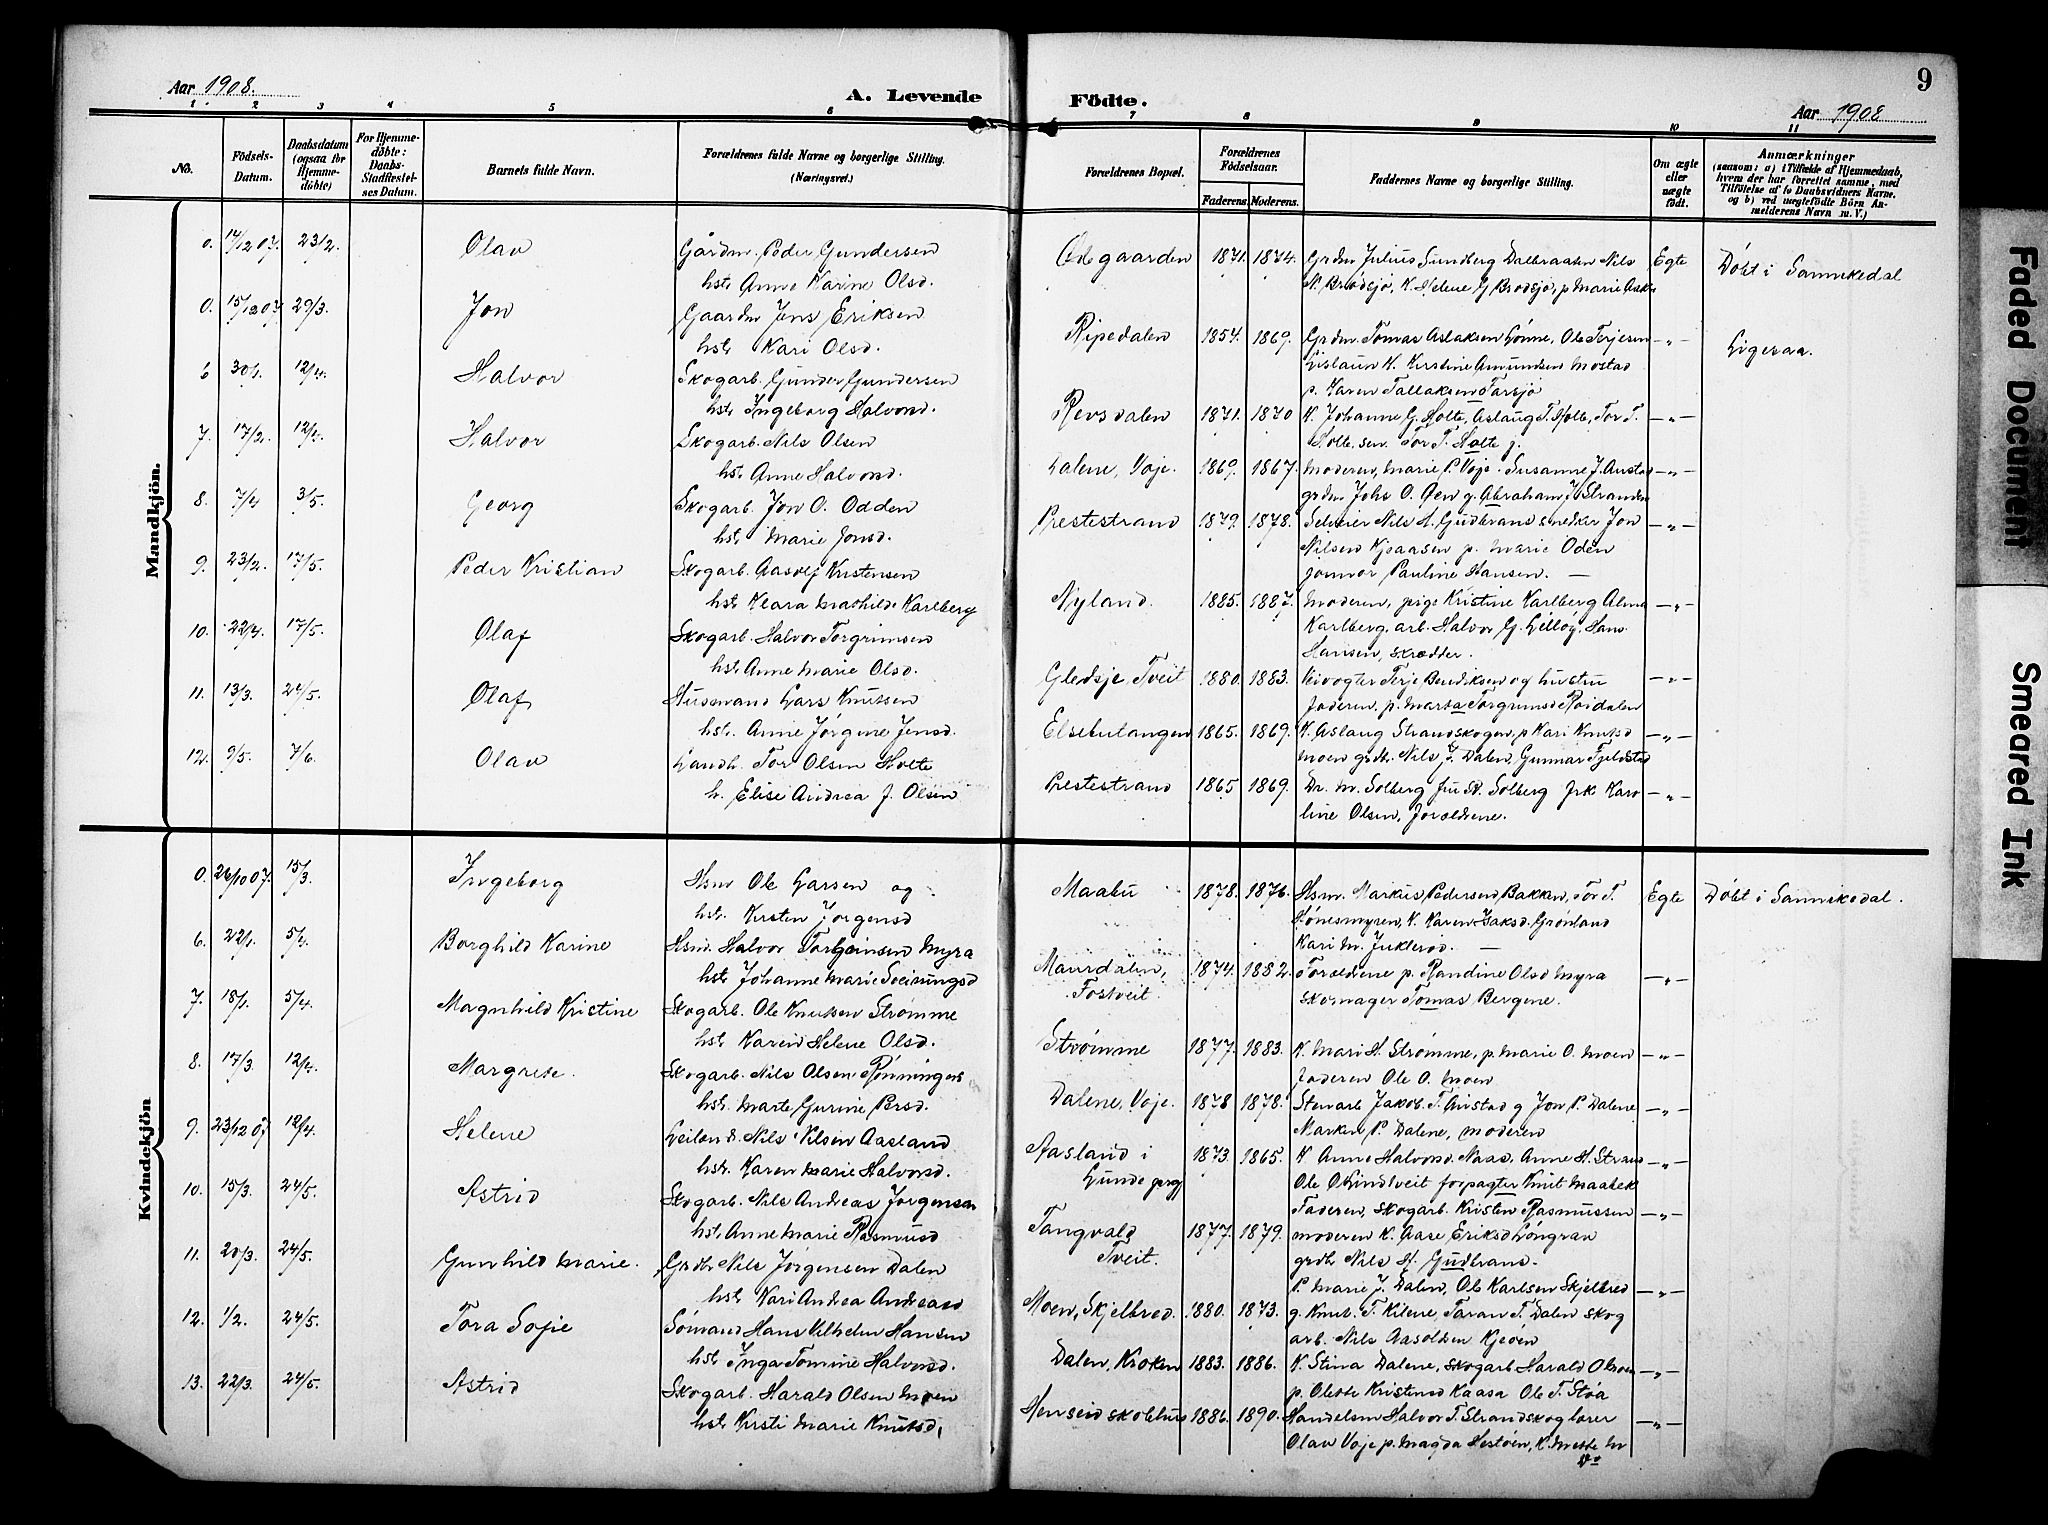 Aar 1908.
A. Levende
Födte.
9
Aar 1908
1. 2 3 4 5 6 7 8 9 10 11
No.
Födsels-
Datum.
Daabsdatum
(ogsaa for
Hjemme-
döbte)
For Hjemme-
döbte:
Daabs-
Stadfæstel-
ses Datum.
Barnets fulde Navn.
Forældrenes fulde Navne og borgerlige Stilling.
(Næringsvei.)
Forældrenes Bopæl.
Forældrenes
Födselsaar.
Faderens. Moderens.
Faddernes Navne og borgerlige Stilling.
Om ægte
eller
uægte
födt.
Anmærkninger
(saasom: a) i Tilfælde af Hjemmedaab,
hvem der har forrettet samme, med
Tilföielse af to Daabsvidners Navne.
og b) ved uægtefödte Börn An-
melderens Navn m. V.)
Mandkjön.
0. 14/12 07. 23/2. Olav Gårdm. Peder Gundersen
hst. Anne Karine Olsd.
Ødegaarden 1871. 1874. Grdm Julius Sundberg Dalbraaten Nils
N. Brødsjø, K. Helene G. Brødsjø, p. Marie
Egte Døbt i Sannikedal
0. 15/12 07. 29/3. Jon Gaardm Jens Eriksen
hst. Kari Olsd.
Ripedalen 1854. 1869. Grdm. Tomas Aslaksen Lønne, Ole Terjesen
K. Kirstine Amundsen Mostad
p. Karen Tallaksen Farsjø
—„— Ligesaa.
6 30/1. 12/4. Halvor Skogarb. Gunder Gundersen
hst. Ingeborg Halvorsd.
Revsdalen 1871. 1870 K. Johanne G. Holte, Aslaug T. Holte, Tor T.
Holte sen. Tor T. Holte j.
—„—
7. 17/2. 12/4. Halvor Skogarb. Nils Olsen
hst. Anne Halvorsd.
Dalene, Voje. 1869. 1867. Moderen, Marie P. Voje. Susanne J. Austad
grdm Johs O. Øen g. Abraham J. Stranden
—„—
8. 7/4 3/5. Georg Skogarb. Jon O. Odden
hst. Marie Jonsd.
Prestestrand 1879. 1878. Selveier Nils A. Gudbrans snedker Jon
Nilsen Kjeaasen p. Marie Oden
jomfr Pauline Hansen. —
—„—
9. 23/2. 17/5. Peder Kristian Skogarb. Aasolf Kristensen
hst. Klara Mathilde Karlberg
Nyland. 1885. 1887. Moderen, pige Kristine Karlberg Alma
Karlberg, arb. Halvor G. Lilløy, Hans
Hansen, skrædder.
—„—
10. 22/4. 17/5. Olaf Skogarb. Halvor Torgrimsen
hst. Anne Marie Olsd.
Gledsje, Tveit 1880. 1883. Veivogter Terje Bendiksen og hustru
Faderen, p. Marta Torgrimsd Røidalen
—„—
11. 13/3. 24/5. Olaf Husmand Lars Knutsen
hst. Anne Jørgine Jensd.
Elsebutangen 1865. 1869. K. Aslaug Strandskogen, p Kari Knutsd
Moen grdbr. Nils J. Dalen, Gunnar Fjeldstad
—„—
12. 9/5. 7/6. Olav Landh. Tor Olsen Holte
h. Elise Andrea J. Olsen
Prestestrand 1865 1869. Dr. M. Solberg fru St. Solberg frk Karo
line Olsen, Forældrene.
—„—
Kvindekjön
0. 26/10 07. 15/3. Ingeborg Hsm Ole Larsen og
hst. Kirsten Jørgensd
Maabu 1878. 1876. Hsm. Markus Pedersen Bakken, Tor T.
Hønesmyren, K. Karen Isaksd. Grønland
Kari M. Juklerød. —
Egte Døbt i Sannikedal.
6. 22/1. 5/4. Borghild Karine Hsm. Halvor Torgeinsen Myra
hst. Johanne Marie Sveinungsd
Maurdalen,
Fostveit. 1874. 1882. Forældrene p. Randine Olsd Myra
skomager Tomas Bergene.
—„—
7. 18/1. 5/4. Magnhild Kristine Skogarb. Ole Knutsen Strømme
hst. Karen Helene Olsd.
Strømme 1877. 1883. K. Mari H. Strømme, p. Marie O. Moen
Faderen Ole O. Moen
—„—
8. 17/3. 12/4. Margrete. Skogarb. Nils Olsen Rønningen
hst. Marte Gurine Persd.
Dalene, Voje. 1878 1878. Stenarb Jakob T. Austad g Jon P. Dalene
Marken P. Dalene, moderen
—„—
9. 23/12 07 12/4. Helene Leilend. Nils Nilsen Aasland
hst. Karen Marie Halvorsd.
Aasland i
Lunde prg 1873. 1865. K Anne Halvorsd. Naas, Anne H. Strand
Ole O Lindtveit forpagter Knut Maabek
—„—
10. 15/3. 24/5. Astrid Skogarb. Nils Andreas Jørgensen
hst. Anne Marie Rasmusd
Tangvald
Tveit. 1877. 1879. Faderen, skogarb. Kristen Rasmussen
moderen K. Aase Eriksd Longrav
grdbr Nils H. Gudbrans.
—„—
11. 20/3. 24/5. Gunhild Marie. Grdbr Nils Jørgensen Dalen
hst. Kari Andrea Andreasd
Moen, Skjelbred. 1880. 1873. P. Marie J. Dalen, Ole Karlsen Skjelbred
g. Knut T. Kilene, Taran T. Dalen skog
arb. Nils Aasoldsen Kjeøen
—„—
12. 1/2. 24/5. Tora Sofie Sømand Hans Vilhelm Hansen
hst. Inga Tomine Halvorsd.
Dalen, Kroken 1883. 1886. K. Stina Dalene, skogarb. Harald O. Moen
p. Olette Kristensd Kaasa Ole T. Støa
—„—
13. 22/3. 24/5. Astrid Skogarb. Harald Olsen Moen
hst. Kirsti Marie Knutsd.
Henseid skolehus 1886. 1890. Handelsm Halvor T. Strandskog lærer
Olav Voje p. Magda Hestøen, K. Mette M
—„—
Faded Document
Smeared Ink